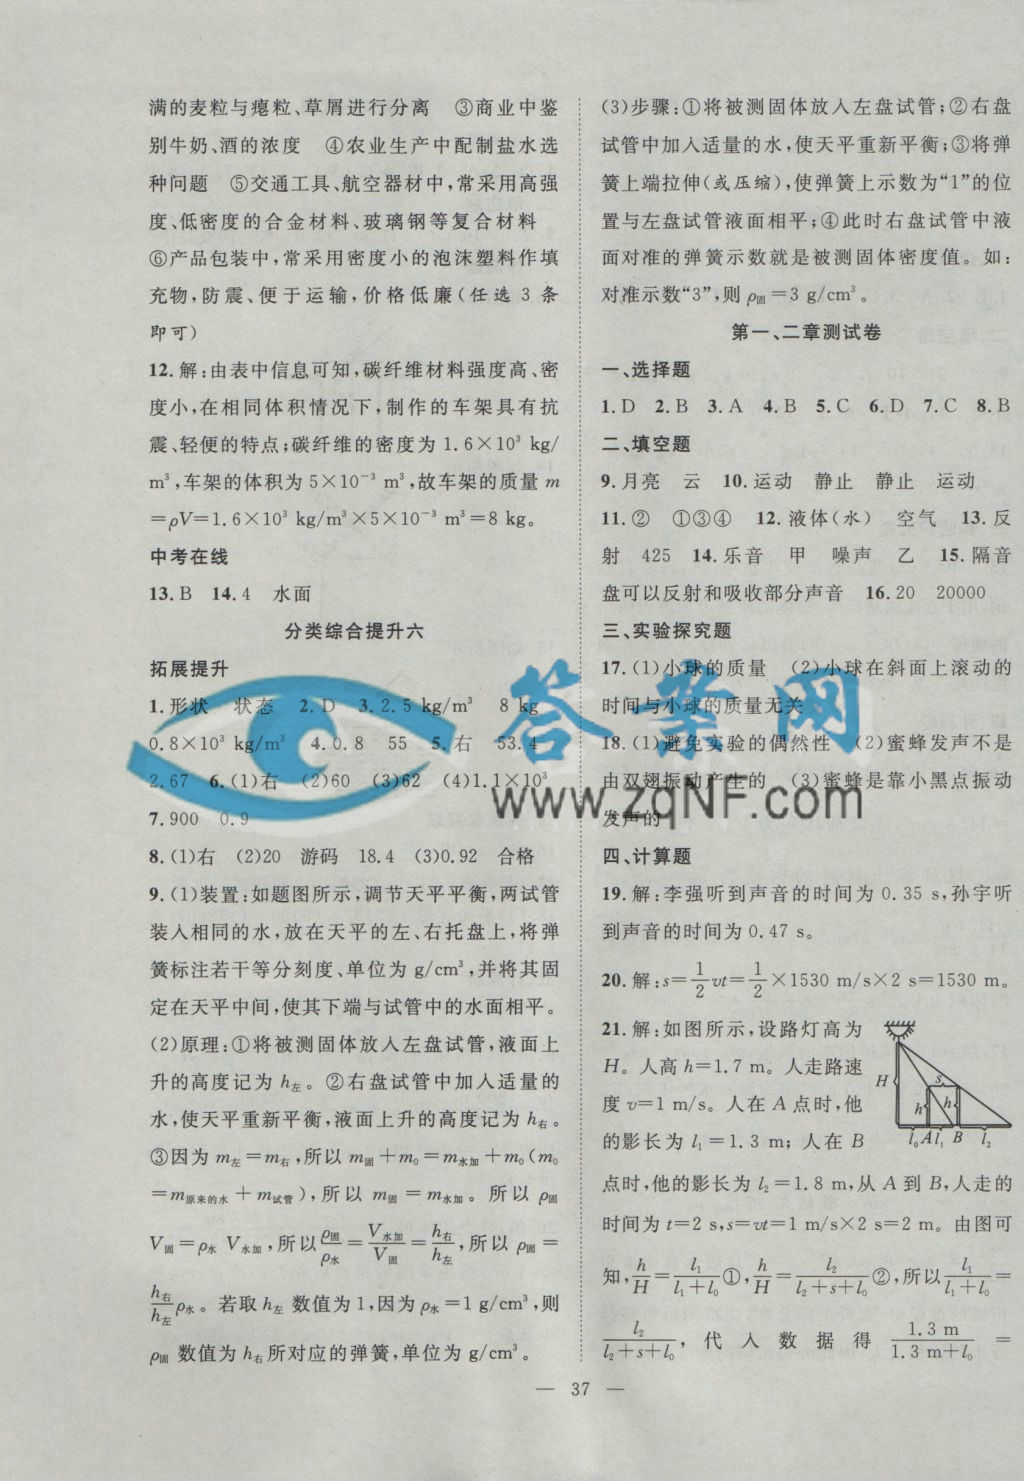 满的麦粒与瘪粒、草屑进行分离　③商业中鉴
别牛奶、酒的浓度　④农业生产中配制盐水选
种问题　⑤交通工具、航空器材中,常采用高强
度、低密度的合金材料、玻璃钢等复合材料
⑥产品包装中,常采用密度小的泡沫塑料作填
充物,防震、便于运输,价格低廉(任选 3 条
即可)
12.解:由表中信息可知,碳纤维材料强度高、密
度小,在相同体积情况下,制作的车架具有抗
震、轻便的特点;碳纤维的密度为 1.6×10³ kg/
m³,车架的体积为 5×10⁻³ m³,故车架的质量 m
=ρV=1.6×10³ kg/m³×5×10⁻³ m³=8 kg。
中考在线
13.B　14.4　水面
分类综合提升六
拓展提升
1.形状　状态　2.D　3.2.5 kg/m³　8 kg
0.8×10³ kg/m³　4.0.8　55　5.右　53.4
2.67　6.(1)右　(2)60　(3)62　(4)1.1×10³
7.900　0.9
8.(1)右　(2)20　游码　18.4　(3)0.92　合格
9.(1)装置:如题图所示,调节天平平衡,两试管
装入相同的水,放在天平的左、右托盘上,将弹
簧标注若干等分刻度、单位为 g/cm³,并将其固
定在天平中间,使其下端与试管中的水面相平。
(2)原理:①将被测固体放入左盘试管,液面上
升的高度记为 h左。②右盘试管中加入适量的
水,使天平重新平衡,液面上升的高度记为 h右。
③因为 m左=m右,所以 m固+m₀=m水加+m₀(m₀
=m原来的水+m试管),所以 m固=m水加。所以 ρ固
V固=ρ水 V水加,所以ρ固/ρ水=V水加/V固=h右/h左,所以 ρ固=
h右/h左ρ水。若取 h左 数值为 1,因为 ρ水=1 g/cm³,则
ρ固 数值为 h右所对应的弹簧,单位为 g/cm³。
(3)步骤:①将被测固体放入左盘试管;②右盘
试管中加入适量的水,使天平重新平衡;③将弹
簧上端拉伸(或压缩),使弹簧上示数为“1”的位
置与左盘试管液面相平;④此时右盘试管中液
面对准的弹簧示数就是被测固体密度值。如:
对准示数“3”,则 ρ固=3 g/cm³。
第一、二章测试卷
一、选择题
1.D　2.B　3.A　4.B　5.C　6.D　7.C　8.B
二、填空题
9.月亮　云　10.运动　静止　静止　运动
11.②　①③④　12.液体(水)　空气　13.反
射　425　14.乐音　甲　噪声　乙　15.隔音
盘可以反射和吸收部分声音　16.20　20000
三、实验探究题
17.(1)小球的质量　(2)小球在斜面上滚动的
时间与小球的质量无关
18.(1)避免实验的偶然性　(2)蜜蜂发声不是
由双翅振动产生的　(3)蜜蜂是靠小黑点振动
发声的
四、计算题
19.解:李强听到声音的时间为 0.35 s,孙宇听
到声音的时间为 0.47 s。
20.解:s=1/2vt=1/2×1530 m/s×2 s=1530 m。
21.解:如图所示,设路灯高为
H。人高 h=1.7 m。人走路速
度 v=1 m/s。人在 A 点时,他
的影长为 l₁=1.3 m;人在 B
点时,他的影长为 l₂=1.8 m,从 A 到 B,人走的
时间为 t=2 s,s=vt=1 m/s×2 s=2 m。由图可
知,h/H=l₁/(l₁+l₀)①,h/H=l₂/(l₂+s+l₀)②,所以l₁/(l₁+l₀)=
l₂/(l₂+s+l₀),代入数据得 1.3 m/(1.3 m+l₀) =
H
s
h
h
l₀ A l₁ B l₂
答案网
www.zqNF.com
— 37 —